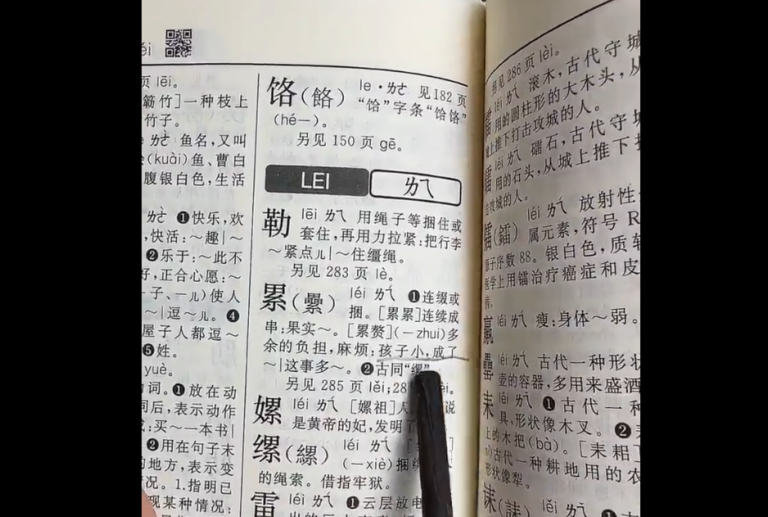 页 lēi.
[筋竹]一种枝上
竹子。
ㄌㄜˋ 鱼名,又叫
(kuài)鱼、曹白
腹银白色,生活
ㄌㄜˋ ❶快乐,欢
,快活:~趣|~
❷乐于:~此不
好,正合心愿:~
子、一儿)使人
~|逗~儿。❹
屋子人都逗~
❺姓。
yuè.
词。❶放在动
词后,表示动作
:买~一本书|
❷用在句子末
的地方,表示变
况。1.指明已
现某种情况:
饹(餎) le·ㄌㄜ 见182页
“饸”字条“饸饹”
(hé—)。
另见 150 页 gē。
LEI ㄌㄟ
勒 lēi ㄌㄟ 用绳子等捆住或
套住,再用力拉紧:把行李
~紧点儿|~住缰绳。
另见 283 页 lè。
累(纍) léi ㄌㄟˊ ❶连缀或
捆。[累累]连续成
串:果实~。[累赘](—zhui)多
余的负担,麻烦:孩子小,成了
~|这事多~。❷古同“缧”
另见 285 页 lěi;28
嫘 léi ㄌㄟˊ [嫘祖]人 说
是黄帝的妃,发明了
缧(縲) léi ㄌㄟˊ
(—xiè)捆绑
的绳索。借指牢狱。
雷 léi ㄌㄟˊ ❶云层放电
另见 286 页 lèi。
léi ㄌㄟˊ 滚木,古代守城
用的圆柱形的大木头,从
城上推下打击攻城的人。
léi ㄌㄟˊ 礌石,古代守城
用的石头,从城上推下
攻城的人。
镭(鐳) léi ㄌㄟˊ 放射性
属元素,符号 R
原子序数 88。银白色,质软
医学上用镭治疗癌症和皮
羸 léi ㄌㄟˊ 瘦:身体~弱。
罍 léi ㄌㄟˊ 古代一种形状
壶的容器,多用来盛酒
耒 lěi ㄌㄟˇ ❶古代一种
具,形状像木叉。❷
上的木把(bà)。[耒耜]
古代一种耕地用的农
形状像犁。
诔(誄) lěi ㄌㄟˇ ❶古